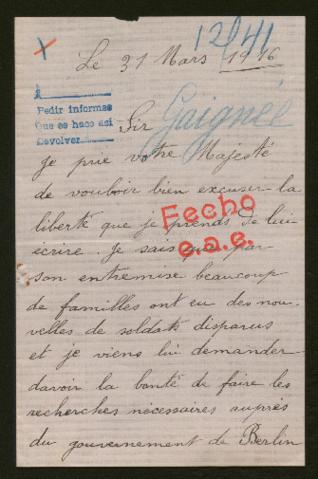 12/41
Le 31 Mars 1916
A
Pedir informes
Que se hace así
Devolver
Gaignée
Sir
Je prie votre Majesté
de vouloir bien excuser la
liberté que je prends de lui
écrire. Je sais que par
Fecho
e.a.e.
son entremise beaucoup
de familles ont eu des nou-
velles de soldats disparus
et je viens lui demander
davoir la bonté de faire les
recherches nécessaires auprès
du gouvernement de Berlin